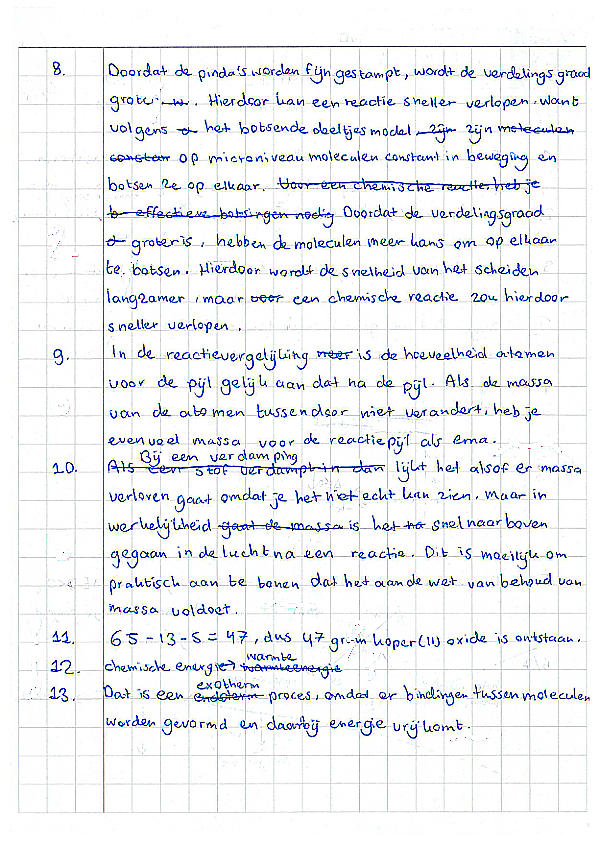 8. Doordat de pinda's worden fijn gestampt, wordt de verdelingsgraad
groter. Hierdoor kan een reactie sneller verlopen. Want
volgens het botsende deeltjes model zijn zijn moleculen
constan op microniveau moleculen constant in beweging en
botsen ze op elkaar. Voor een chemische reactie heb je
b effectieve botsingen nodig Doordat de verdelingsgraad
d groter is, hebben de moleculen meer kans om op elkaar
te botsen. Hierdoor wordt de snelheid van het scheiden
langzamer, maar voor een chemische reactie zou hierdoor
sneller verlopen.
9. In de reactievergelijking neer is de hoeveelheid atomen
voor de pijl gelijk aan dat na de pijl. Als de massa
van de atomen tussendoor niet verandert, heb je
evenveel massa voor de reactiepijl als erna.
Bij een verdamping
10. Als een stof verdampt in dan lijkt het alsof er massa
verloren gaat omdat je het niet echt kan zien, maar in
werkelijkheid gaat de massa is het na snel naar boven
gegaan in de lucht na een reactie. Dit is moeilijk om
praktisch aan te tonen dat het aan de wet van behoud van
massa voldoet.
11. 65-13-5=47, dus 47 gram koper(II) oxide is ontstaan.
warmte
12. chemische energie → warmteenergie
exotherm
13. Dat is een endoterm proces, omdat er bindingen tussen moleculen
worden gevormd en daarbij energie vrijkomt.